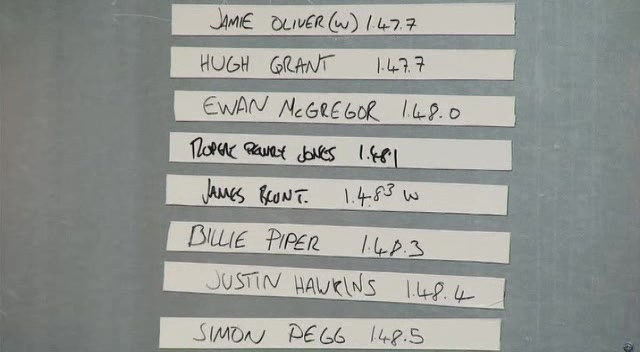 JAMIE OLIVER (W) 1.47.7
HUGH GRANT 1.47.7
EWAN McGREGOR 1.48.0
RUPERT PENRY JONES 1.48.1
JAMES BLUNT. 1.483 W
BILLIE PIPER 1.48.3
JUSTIN HAWKINS 1.48.4
SIMON PEGG 148.5